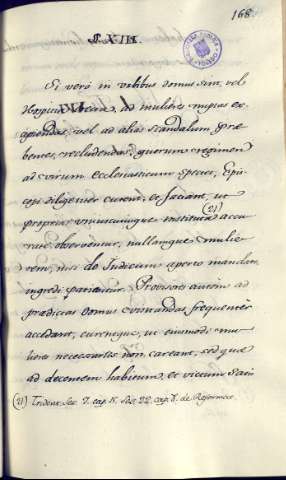 168.
§. XIII.
Si verò in urbibus domus sint, vel
Hospitia Vbera, ad mulieres nuptas ex-
cipiendas, vel ad alias scandalum præ-
bentes, recludendas, quarum regimen
ad virum Ecclesiasticum spectet, Epis-
copi diligenter curent, et faciant, ut
propria uniuscuiusque instituta (21) accu-
ratè observentur, nullamque mulie-
rem, nisi de Iudicum aperto mandato
ingredi patiantur. Provisores autem ad
prædictas domus visitandas frequentèr
accedant, curentque, ut eiusmodi mu-
lieres necessariis non careant, sed quæ
ad decentem habitum, et victum satis
(21) Trident. Ses. 7. cap. 15. Ses. 22. cap. 8. de Reformae.